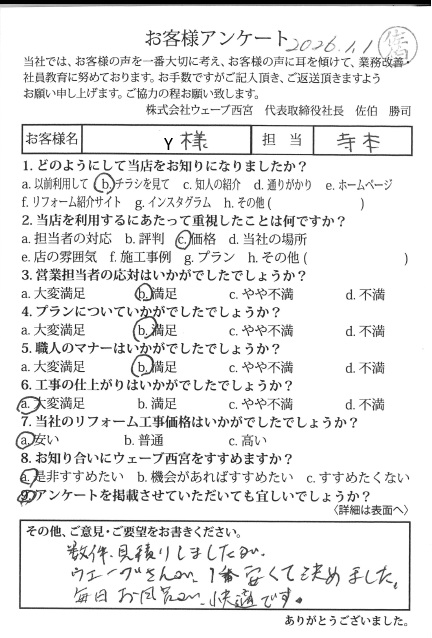 お客様アンケート 2026.1.1 佐伯
当社では、お客様の声を一番大切に考え、お客様の声に耳を傾けて、業務改善・
社員教育に努めております。お手数ですがご記入頂き、ご返送頂きますよう
お願い申し上げます。ご協力の程お願い致します。
株式会社ウェーブ西宮 代表取締役社長 佐伯 勝司
お客様名 Y 様 担 当 寺本
1. どのようにして当店をお知りになりましたか?
a. 以前利用して b. チラシを見て c. 知人の紹介 d. 通りがかり e. ホームページ
f. リフォーム紹介サイト g. インスタグラム h. その他 ( )
2. 当店を利用するにあたって重視したことは何ですか?
a. 担当者の対応 b. 評判 c. 価格 d. 当社の場所
e. 店の雰囲気 f. 施工事例 g. プラン h. その他 ( )
3. 営業担当者の応対はいかがでしたでしょうか?
a. 大変満足 b. 満足 c. やや不満 d. 不満
4. プランについていかがでしたでしょうか?
a. 大変満足 b. 満足 c. やや不満 d. 不満
5. 職人のマナーはいかがでしたでしょうか?
a. 大変満足 b. 満足 c. やや不満 d. 不満
6. 工事の仕上がりはいかがでしたでしょうか?
a. 大変満足 b. 満足 c. やや不満 d. 不満
7. 当社のリフォーム工事価格はいかがでしたでしょうか?
a. 安い b. 普通 c. 高い
8. お知り合いにウェーブ西宮をすすめますか?
a. 是非すすめたい b. 機会があればすすめたい c. すすめたくない
9. アンケートを掲載させていただいても宜しいでしょうか?
〈詳細は表面へ〉
その他、ご意見・ご要望をお書きください。
数件、見積りしましたが、
ウェーブさんが、1番安くて決めました。
毎日お風呂が、快適です。
ありがとうございました。